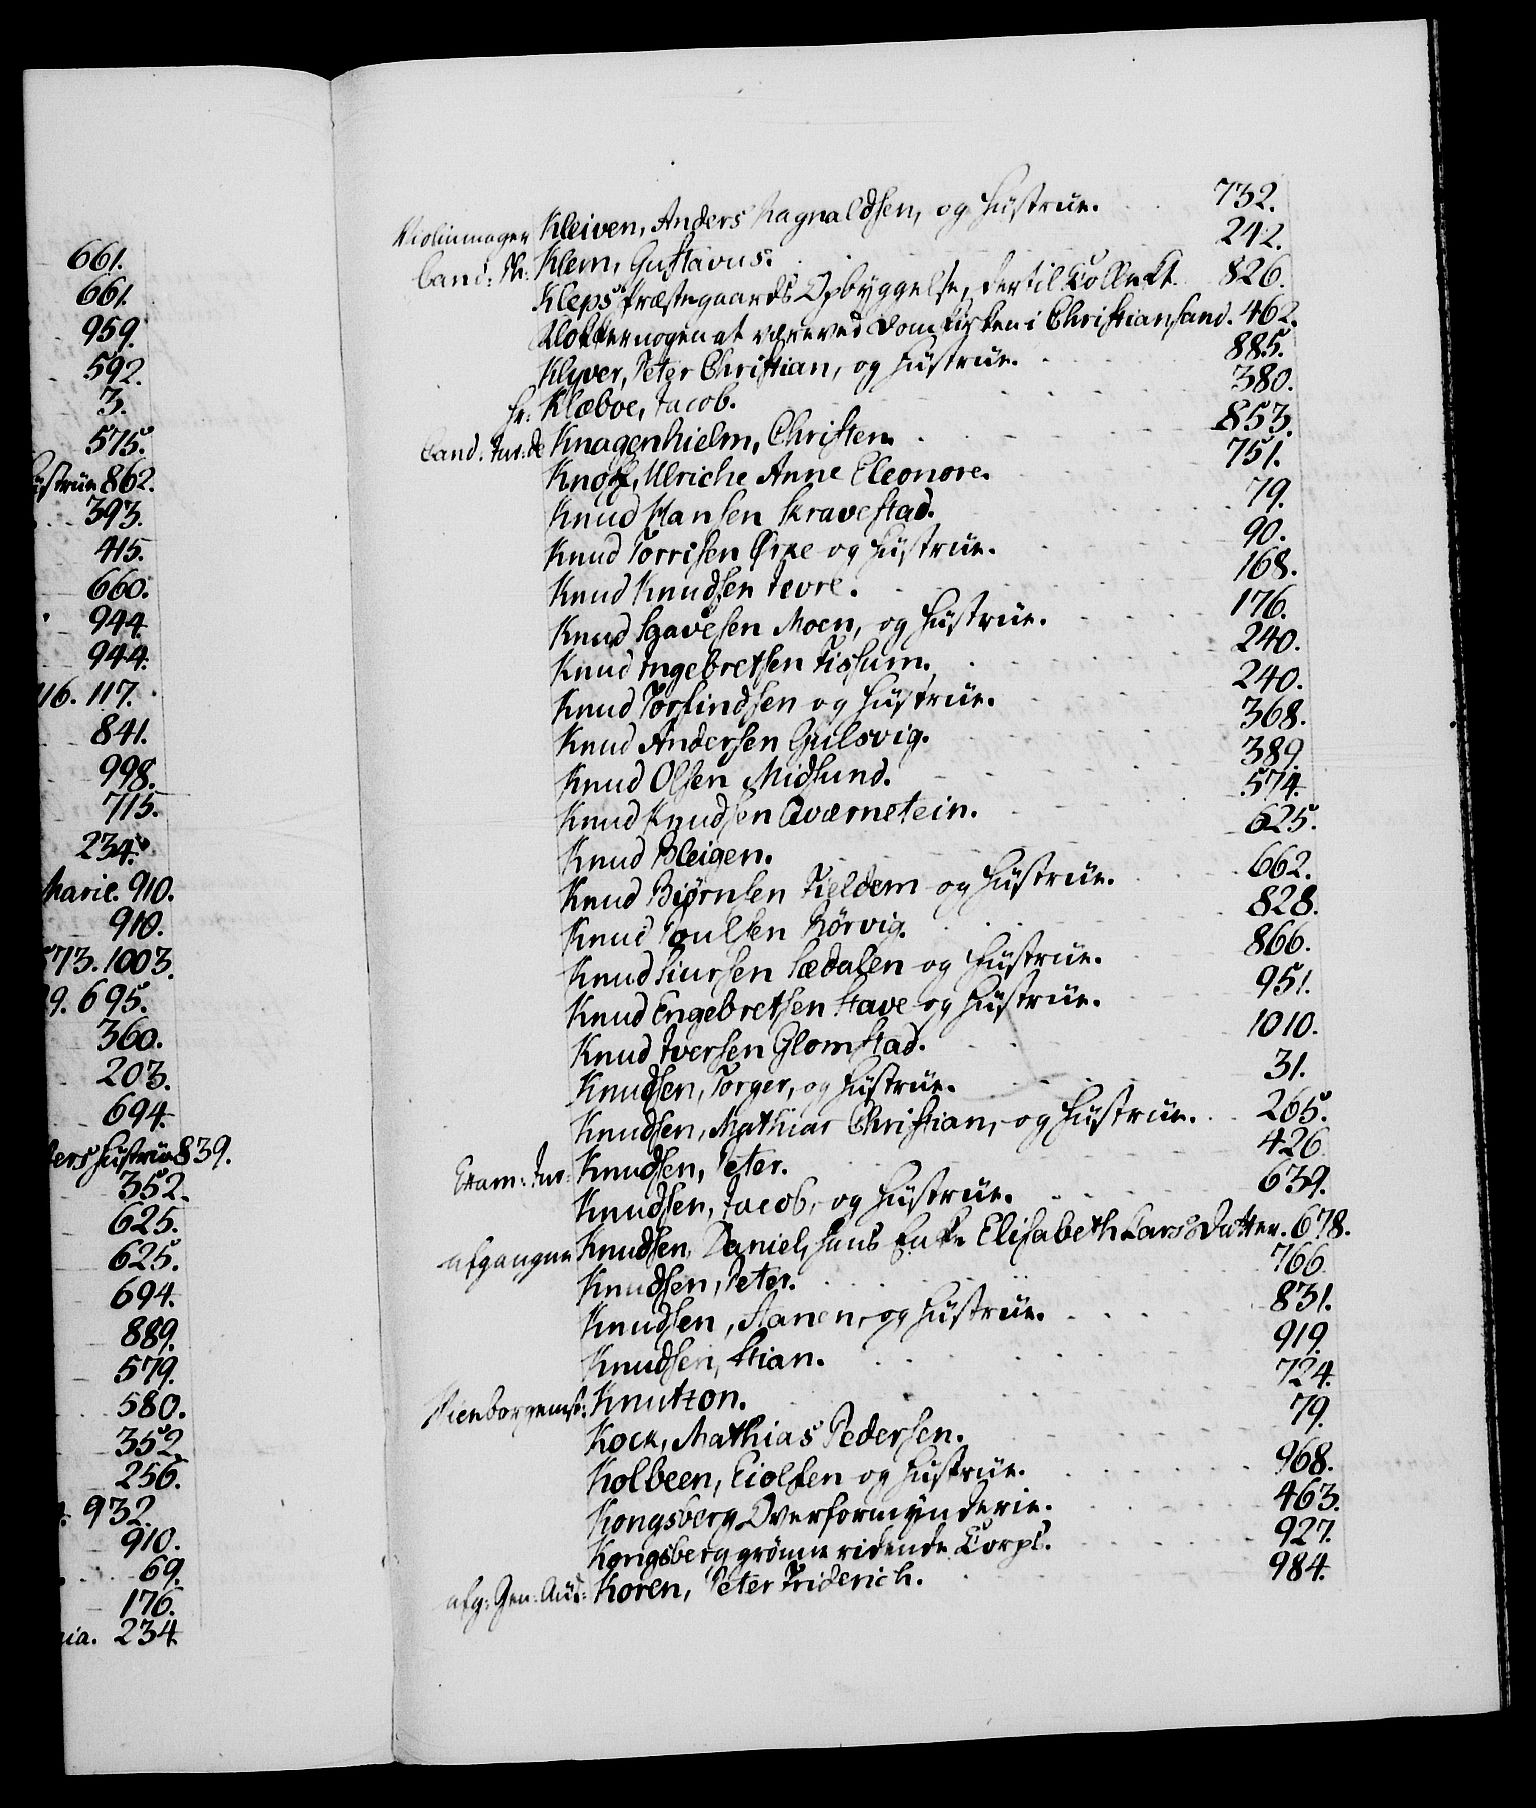 661.
661.
959.
592.
3.
575.
862.
393.
415.
660.
944.
944.
116. 117.
841.
998.
715.
234.
Marie. 910.
910.
573. 1003.
695.
360.
203.
694.
Hustrue 839.
352.
625.
625.
694.
889.
579.
580.
352.
256.
932.
910.
69.
176.
234.
Violinmager Kleiven, Anders Ragnaldsen, og Hustrue. 732.
Cand: Ph: Klem, Gustavus. 242.
Kleps Præstegaards Opbyggelse, dertil Collect 826.
Klokker nogen at være ved Domkirken i Christiansand. 462.
Klyver, Peter Christian, og Hustrue. 885.
Hr: Klæboe, Jacob. 380.
Cand. Jur: de Knagenhielm, Christen. 853.
Knoff, Ulriche Anne Eleonore. 751.
Knud Hansen Kravestad. 79.
Knud Torrisen Ørke og Hustrue. 90.
Knud Knudsen Jevre. 168.
Knud Moen, og Hustrue. 176.
Knud Ingebretsen Tissum. 240.
Knud Torstindsen og Hustrue. 240.
Knud Andersen Gulsvig. 368.
Knud Olsen Midsund. 389.
Knud Knudsen Qværnstein. 574.
Knud Bleigen. 625.
Knud Biørnsen Tieldem og Hustrue. 662.
Knud Poulsen Rørvig. 828.
Knud Siursen Sædalen og Hustrue. 866.
Knud Engebretsen Stave og Hustrue. 951.
Knud Iversen Glomstad. 1010.
Knudsen, Torger, og Hustrue. 31.
Knudsen, Mathias Christian, og Hustrue. 265.
Exam: Jur: Knudsen, Peter. 426.
Knudsen, Jacob, og Hustrue. 639.
afgangne Knudsen, Daniel, hans Enke Elisabeth Lars Datter. 678.
Knudsen, Peter. 766.
Knudsen, Hanen, og Hustrue. 831.
Knudsen, Stian. 919.
Knutzon. 724.
Kock, Mathias Pedersen. 79.
Kolbeen, Eiolfen og Hustrue. 968.
Kongsberg Overformynderie. 463.
Kongsberg grønne ridende Corps. 927.
afg: Gen: Aud: Koren, Peter Friderich. 984.